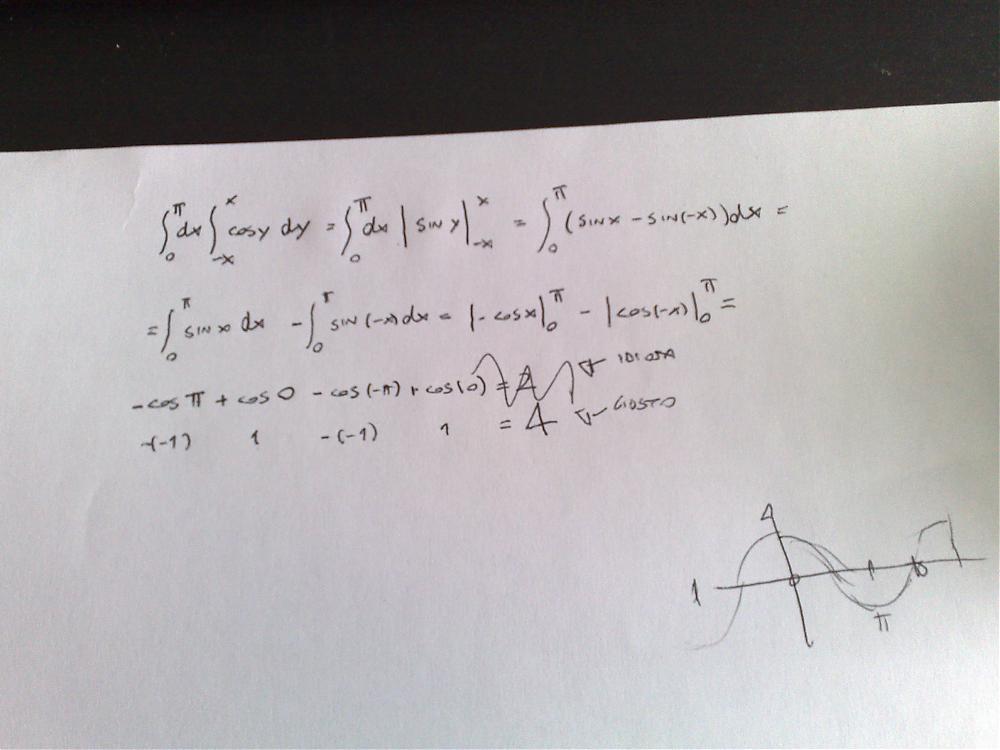 ∫₀^π dx ∫₋ₓ^x cosy dy = ∫₀^π dx | sin y|₋ₓ^x = ∫₀^π (sinx - sin(-x))dx =
= ∫₀^π sin x dx - ∫₀^π sin(-x)dx = |-cosx|₀^π - |cos(-x)|₀^π =
-cos π + cos 0 - cos(-π) + cos(0) = 2 IDIOTA
-(-1) 1 -(-1) 1 = 4 GIUSTO
1
π